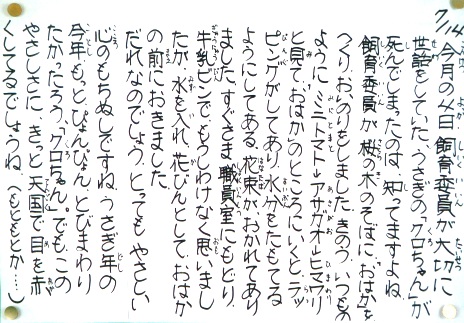 7/14 今月の4日、飼育委員が大切に
世話をしていた、うさぎの「クロちゃん」が
死んでしまったのは、知ってますよね。
飼育委員が、桜の木のそばに、おはかを
つくり、おいのりをしました。きのう、いつもの
ように、ミニトマト→アサガオ→ヒマワリ
と見て、「おはか」のところにいくと、ラッ
ピングがしてあり、水分をたもてる
ようにしてある、花束が、おかれてあり
ました。すぐさま、職員室にもどり、
牛乳ビンで、もうしわけなく思いまし
たが、水を入れ、花びんとして、おはか
の前におきました。
だれなのでしょう。とっても やさしい
心のもちぬしですね。うさぎ年の
今年、もっと、ぴょんぴょん、とびまわり
たかったろう、「クロちゃん」。でも、この
やさしさに、きっと、天国で、目を赤
くしてるでしょうね。(もともとか……)